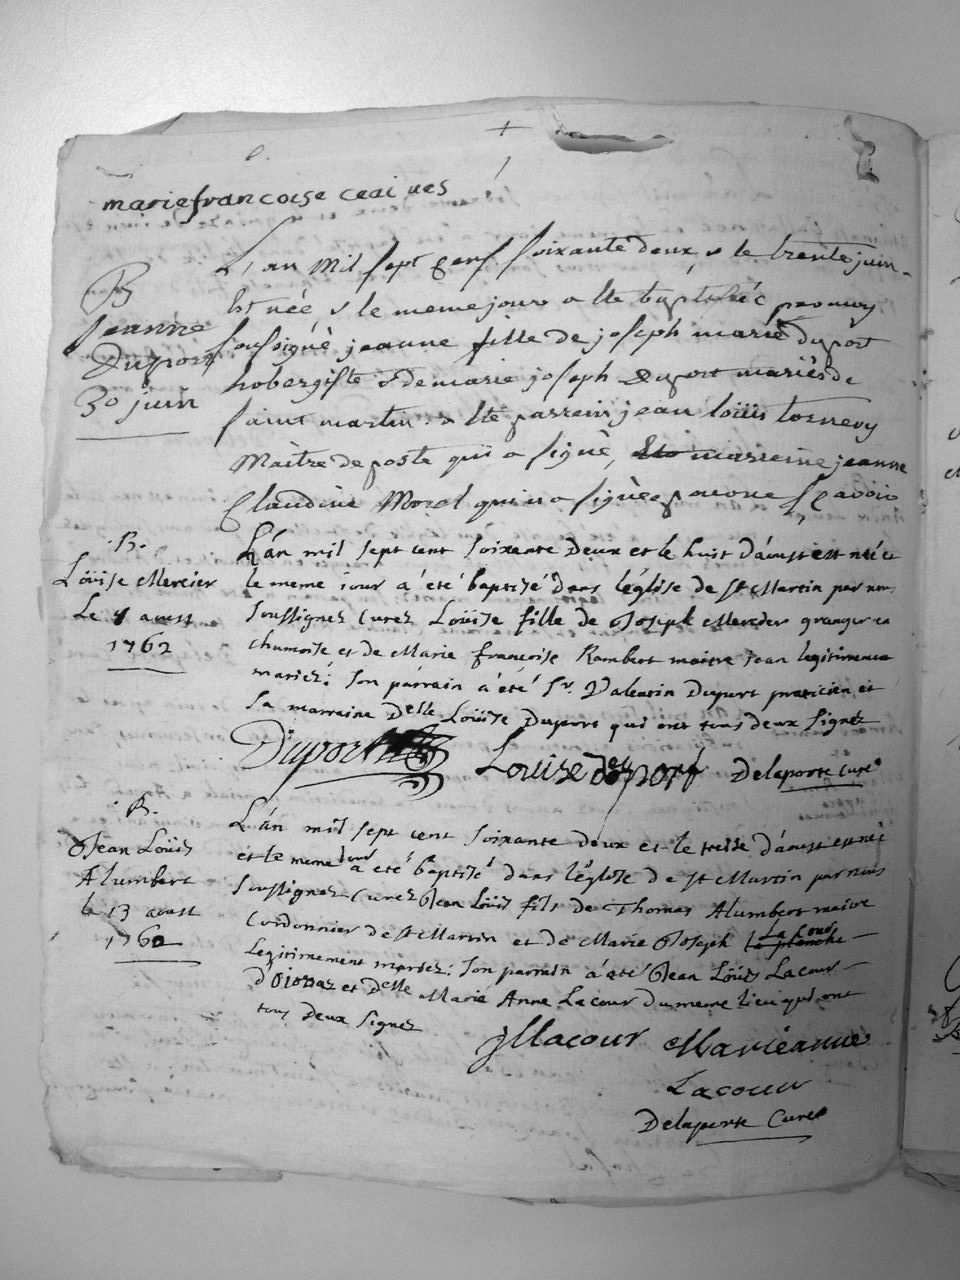 marie francoise
B
jeanne
Duport
30 juin
L'an mil sept cent soixante deux, & le trente juin
Est née & le meme jour a ete baptisée par moy
soussigné jeanne fille de joseph marie duport
hobergiste & de marie joseph duport mariés de
saint martin & ete parrein jean loüis tornery
Maitre de poste qui a signé, marreine jeanne
Claudine Morel qui n'a signèe pour ne sçavoir
.B.
Loüise Mercier
Le aoust
1762
L'án mil sept cent soixante deux et le huit d'áoust est née et
le meme jour a été baptisé dans l'église de st Martin par nous
soussignez curez Loüise fille de Joseph Mercier granger en
chumoise et de Marie françoise Rambert maitre jean legitimement
mariéz: son párrain á été Sr. Valentin Duport praticien et
sa marraine Delle Loüise Duport qui ont tous deux signéz
Duport
Louise duport
Delaporte Curé
.B.
Jean Loüis
Alumbert
le 13 aoust
1762
L'án mil sept cent soixante deux et le treise d'áoust est né
et le meme jour a été baptisé dans l'église de st Martin par nous
soussignez Curez Jean Loüis fils de Thomas Alumbert maitre
Cordonnier de st Martin et de Marie Joseph La Cour
Legitimement mariéz: son parrain á été Jean Loüis Lacour
d'Oionax et Delle Marie Anne Lacour du meme lieu qui ont
tous deux signéz
jlacour
Marieanne
Lacour
Delaporte Curé